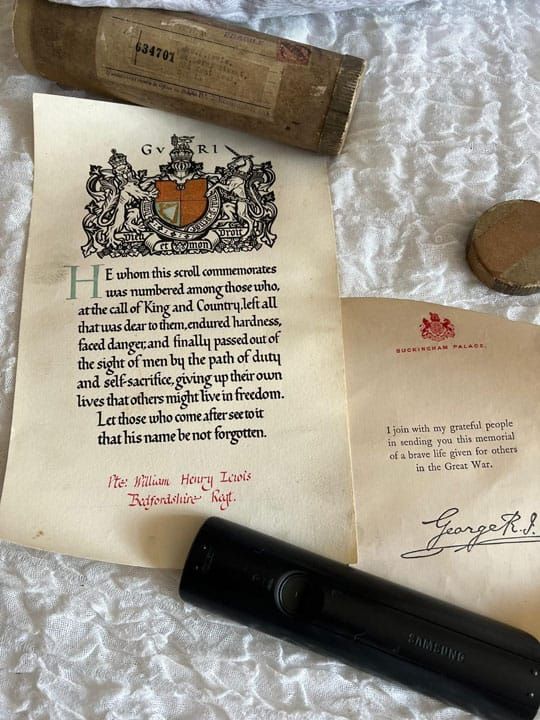 FRAGILE
634701
GV RI
Dieu et mon Droit
HE whom this scroll commemorates
was numbered among those who,
at the call of King and Country, left all
that was dear to them, endured hardness,
faced danger, and finally passed out of
the sight of men by the path of duty
and self-sacrifice, giving up their own
lives that others might live in freedom.
Let those who come after see to it
that his name be not forgotten.
Pte. William Henry Lewis
Bedfordshire Regt.
BUCKINGHAM PALACE.
I join with my grateful people
in sending you this memorial
of a brave life given for others
in the Great War.
George R.I.
SAMSUNG